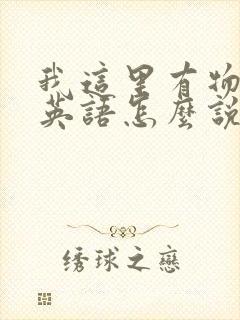 我這里有物
英語怎麼說
绣球之戀